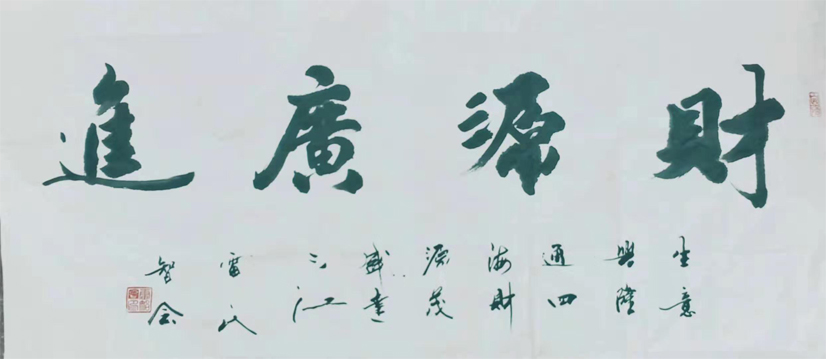 財源廣進
生意
興隆
通四
海財
源茂
盛達
三江
雷氏
智会